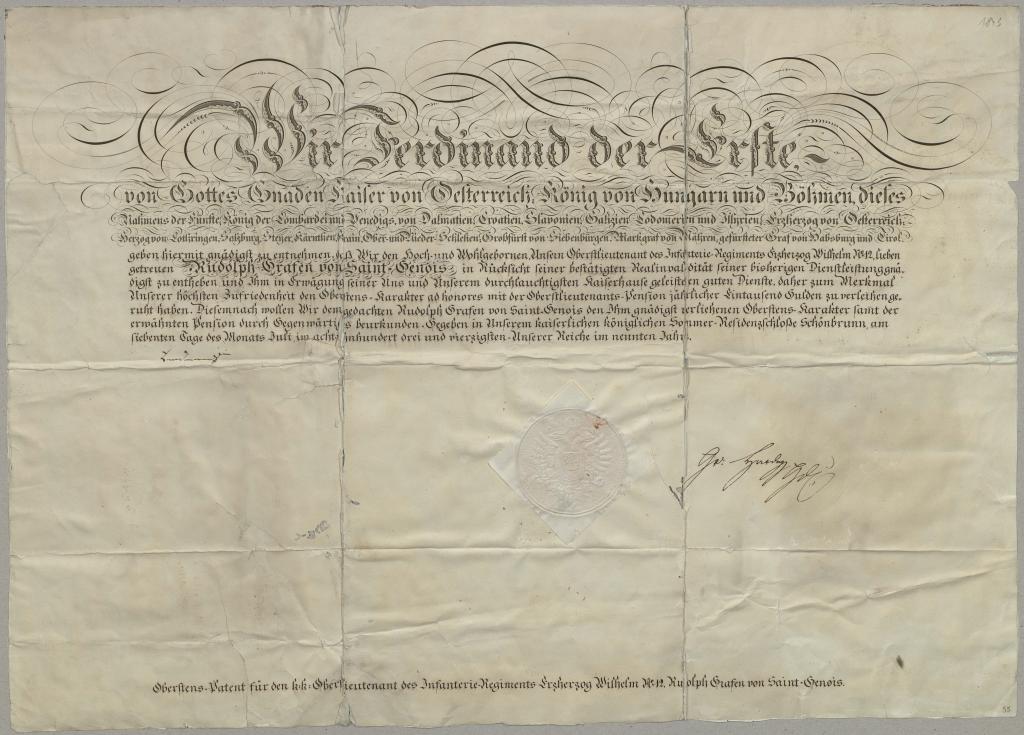 1843
Wir Ferdinand der Erste,
von Gottes Gnaden Kaiser von Oesterreich, König von Hungarn und Böhmen, dieses
Nahmens der Fünfte, König der Lombardei und Venedigs, von Dalmatien, Croatien, Slavonien, Galizien, Lodomerien und Illyrien; Erzherzog von Oesterreich,
Herzog von Lothringen, Salzburg, Steyer, Kärnthen, Krain, Ober- und Nieder-Schlesien, Großfürst von Siebenbürgen, Markgraf von Mähren, gefürsteter Graf von Habsburg und Tirol.
geben hiermit gnädigst zu entnehmen, daß Wir den Hoch- und Wohlgebornen, Unsern Oberstlieutenant des Infanterie-Regiments Erzherzog Wilhelm No. 12, lieben
getreuen Rudolph Grafen von Saint-Genois, in Rücksicht seiner bestätigten Realinvalidität seiner bisherigen Dienstleistung gnä-
digst zu entheben und Ihm in Erwägung seiner Uns und Unserem durchlauchtigsten Kaiserhause geleisteten guten Dienste, daher zum Merkmal
Unserer höchsten Zufriedenheit den Oberstens-Karakter ad honores mit der Oberstlieutenants-Pension jährlicher Eintausend Gulden zu verleihen ge-
ruht haben. Diesemnach wollen Wir dem gedachten Rudolph Grafen von Saint-Genois den Ihm gnädigst verliehenen Oberstens-Karakter samt der
erwähnten Pension durch Gegenwärtiges beurkunden. Gegeben in Unserem kaiserlichen königlichen Sommer-Residenzschloße Schönbrunn, am
siebenten Tage des Monats Juli, im achtzehnhundert drei und vierzigsten - Unserer Reiche im neunten Jahre.
Gr. Hardegg
Oberstens-Patent für den k: k: Oberstlieutenant des Infanterie-Regiments Erzherzog Wilhelm No. 12, Rudolph Grafen von Saint-Genois.
55